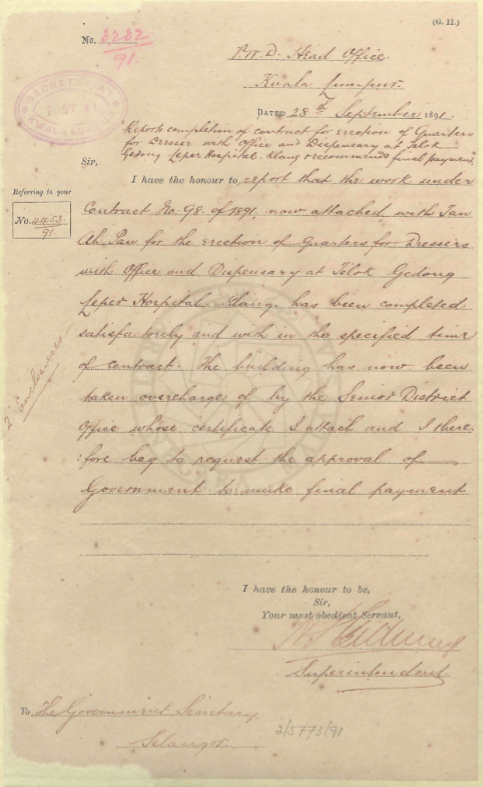 (G. 11.)
No. 3232
91.
P.W.D. Head Office.
Kuala Lumpur.
DATED 28th September 1891.
SECRETARIAT
Reports completion of contract for erection of Quarters
for Dresser with Office and Dispensary at Telok
Gedong Leper Hospital. Klang & recommends final payment.
Sir,
I have the honour to, report that the work under
Referring to your
No. 4453
91.
Contract No. 98. of 1891. now attached with Tan
Ah Pau for the erection of Quarters for Dressers
with Office and Dispensary at Telok Gedong
Leper Hospital. Klang. has been completed
satisfactorely and with in the specified time
of contract. The building has now been
taken overcharge of by the Senior District
Office whose certificate I attach and I there
:fore beg to request the approval of
Government to make final payment
2 Enclosures.
I have the honour to be,
Sir,
Your most obedient Servant,
Superintendent
To The Government Secretary,
Selangor.
2/5773/91